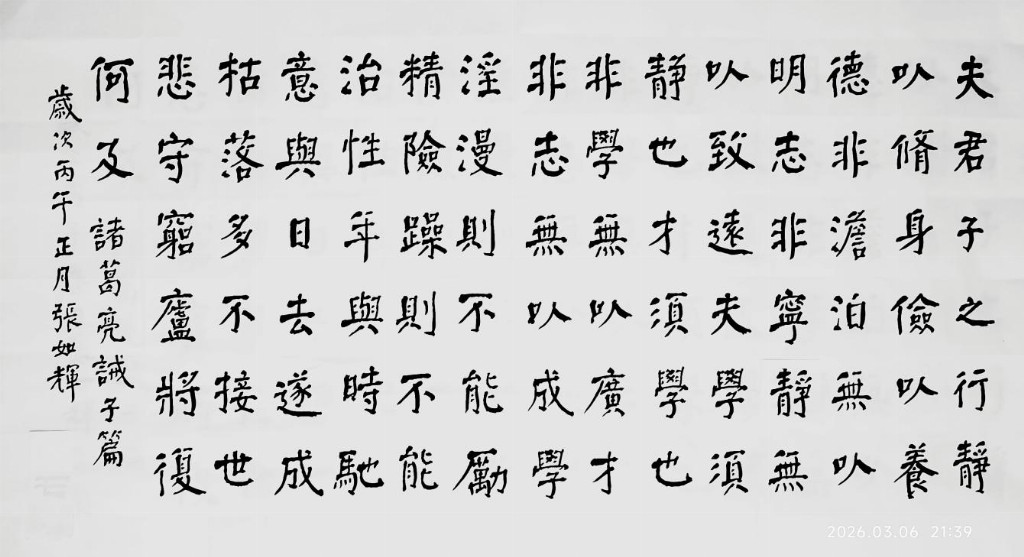 夫君子之行靜
以脩身儉以養
德非澹泊無以
明志非寧靜無
以致遠夫學須
靜也才須學也
非學無以廣才
非志無以成學
淫漫則不能勵
精險躁則不能
治性年與時馳
意與日去遂成
枯落多不接世
悲守窮廬將復
何及 諸葛亮誡子篇
歲次丙午正月張如輝
2026.03.06 21:39